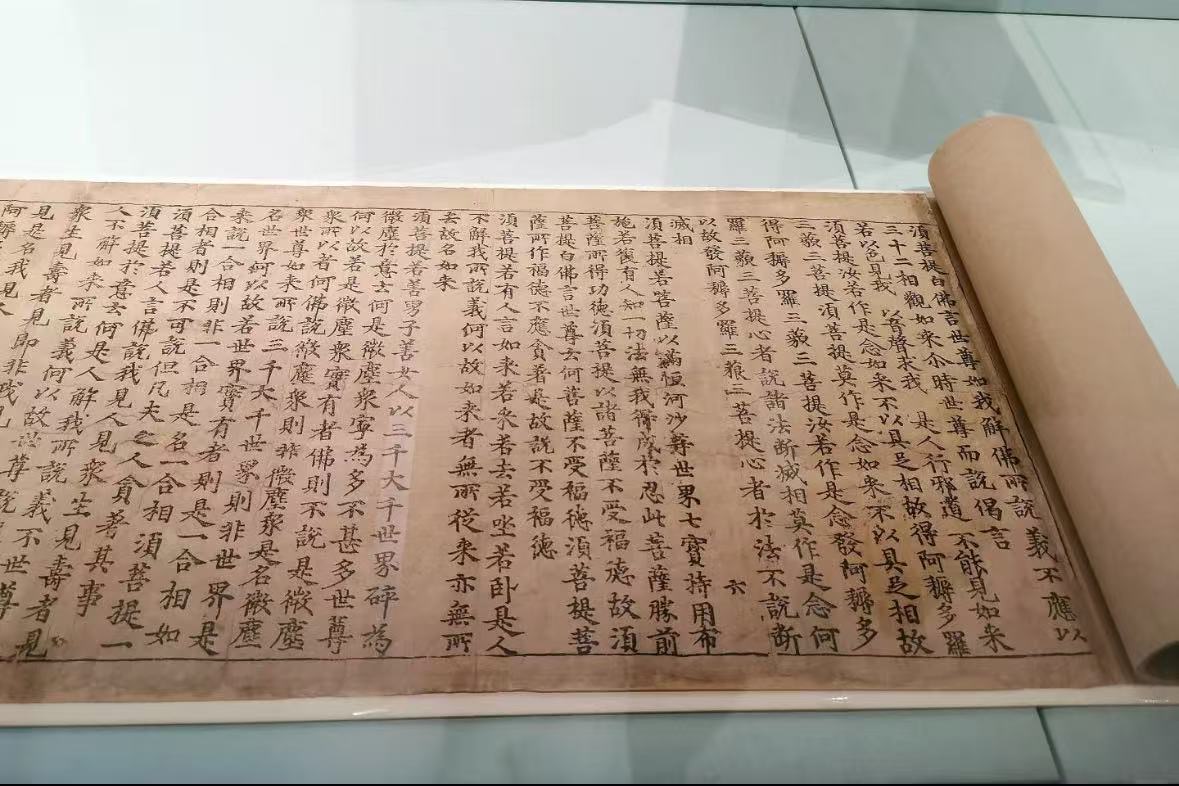 須菩提白佛言世尊如我解佛所說義不應以
三十二相觀如來尒時世尊而說偈言
若以色見我 以音聲求我 是人行邪道 不能見如來
須菩提汝若作是念如來不以具足相故得阿耨多羅
三藐三菩提須菩提莫作是念如來不以具足相故
得阿耨多羅三藐三菩提汝若作是念發阿耨多
羅三藐三菩提心者說諸法斷滅相莫作是念何
以故發阿耨多羅三藐三菩提心者於法不說斷
滅相 六
須菩提若菩薩以滿恒河沙等世界七寶持用布
施若復有人知一切法無我得成於忍此菩薩勝前
菩薩所得功德須菩提以諸菩薩不受福德故須
菩提白佛言世尊云何菩薩不受福德須菩提菩
薩所作福德不應貪著是故說不受福德
須菩提若有人言如來若來若去若坐若卧是人
不解我所說義何以故如來者無所從来亦無所
去故名如来
須菩提若善男子善女人以三千大千世界碎為
微塵於意云何是微塵衆寧為多不甚多世尊
何以故若是微塵衆實有者佛則不說是微塵
衆所以者何佛說微塵衆則非微塵衆是名微塵
衆世尊如來所說三千大千世界則非世界是
名世界何以故若世界實有者則是一合相如
來說一合相則非一合相是名一合相須菩提一
合相者則是不可說但凡夫之人貪著其事
須菩提若人言佛說我見人見衆生見壽者見
須菩提於意云何是人解我所說義不世尊
人不解如来所說義何以故世尊說
衆生見壽者見即非我見
見是名我見人